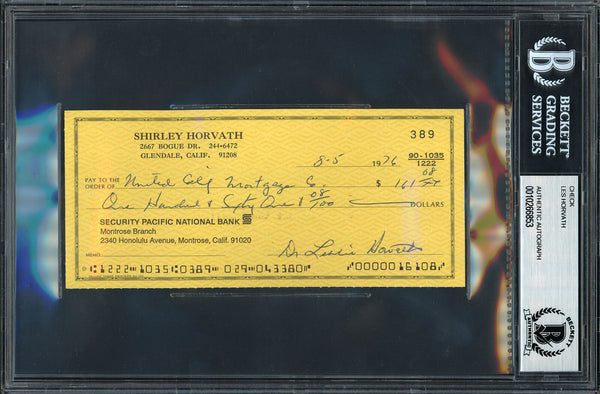 SHIRLEY HORVATH
2667 BOGUE DR. 244-6472
GLENDALE, CALIF. 91208
389
8-5 1976
90-1035
1222
PAY TO THE
ORDER OF United Calif Mortgage Co. $ 161 08
One Hundred & Sixty One & 08/100 DOLLARS
SECURITY PACIFIC NATIONAL BANK
Montrose Branch
2340 Honolulu Avenue, Montrose, Calif. 91020
MEMO
Dr. Leslie Horvath
1222 1035 0389 029 043380 0000016108
BECKETT
GRADING
SERVICES
CHECK
LES HORVATH
AUTHENTIC AUTOGRAPH
0010266853
BECKETT
AUTHENTIC